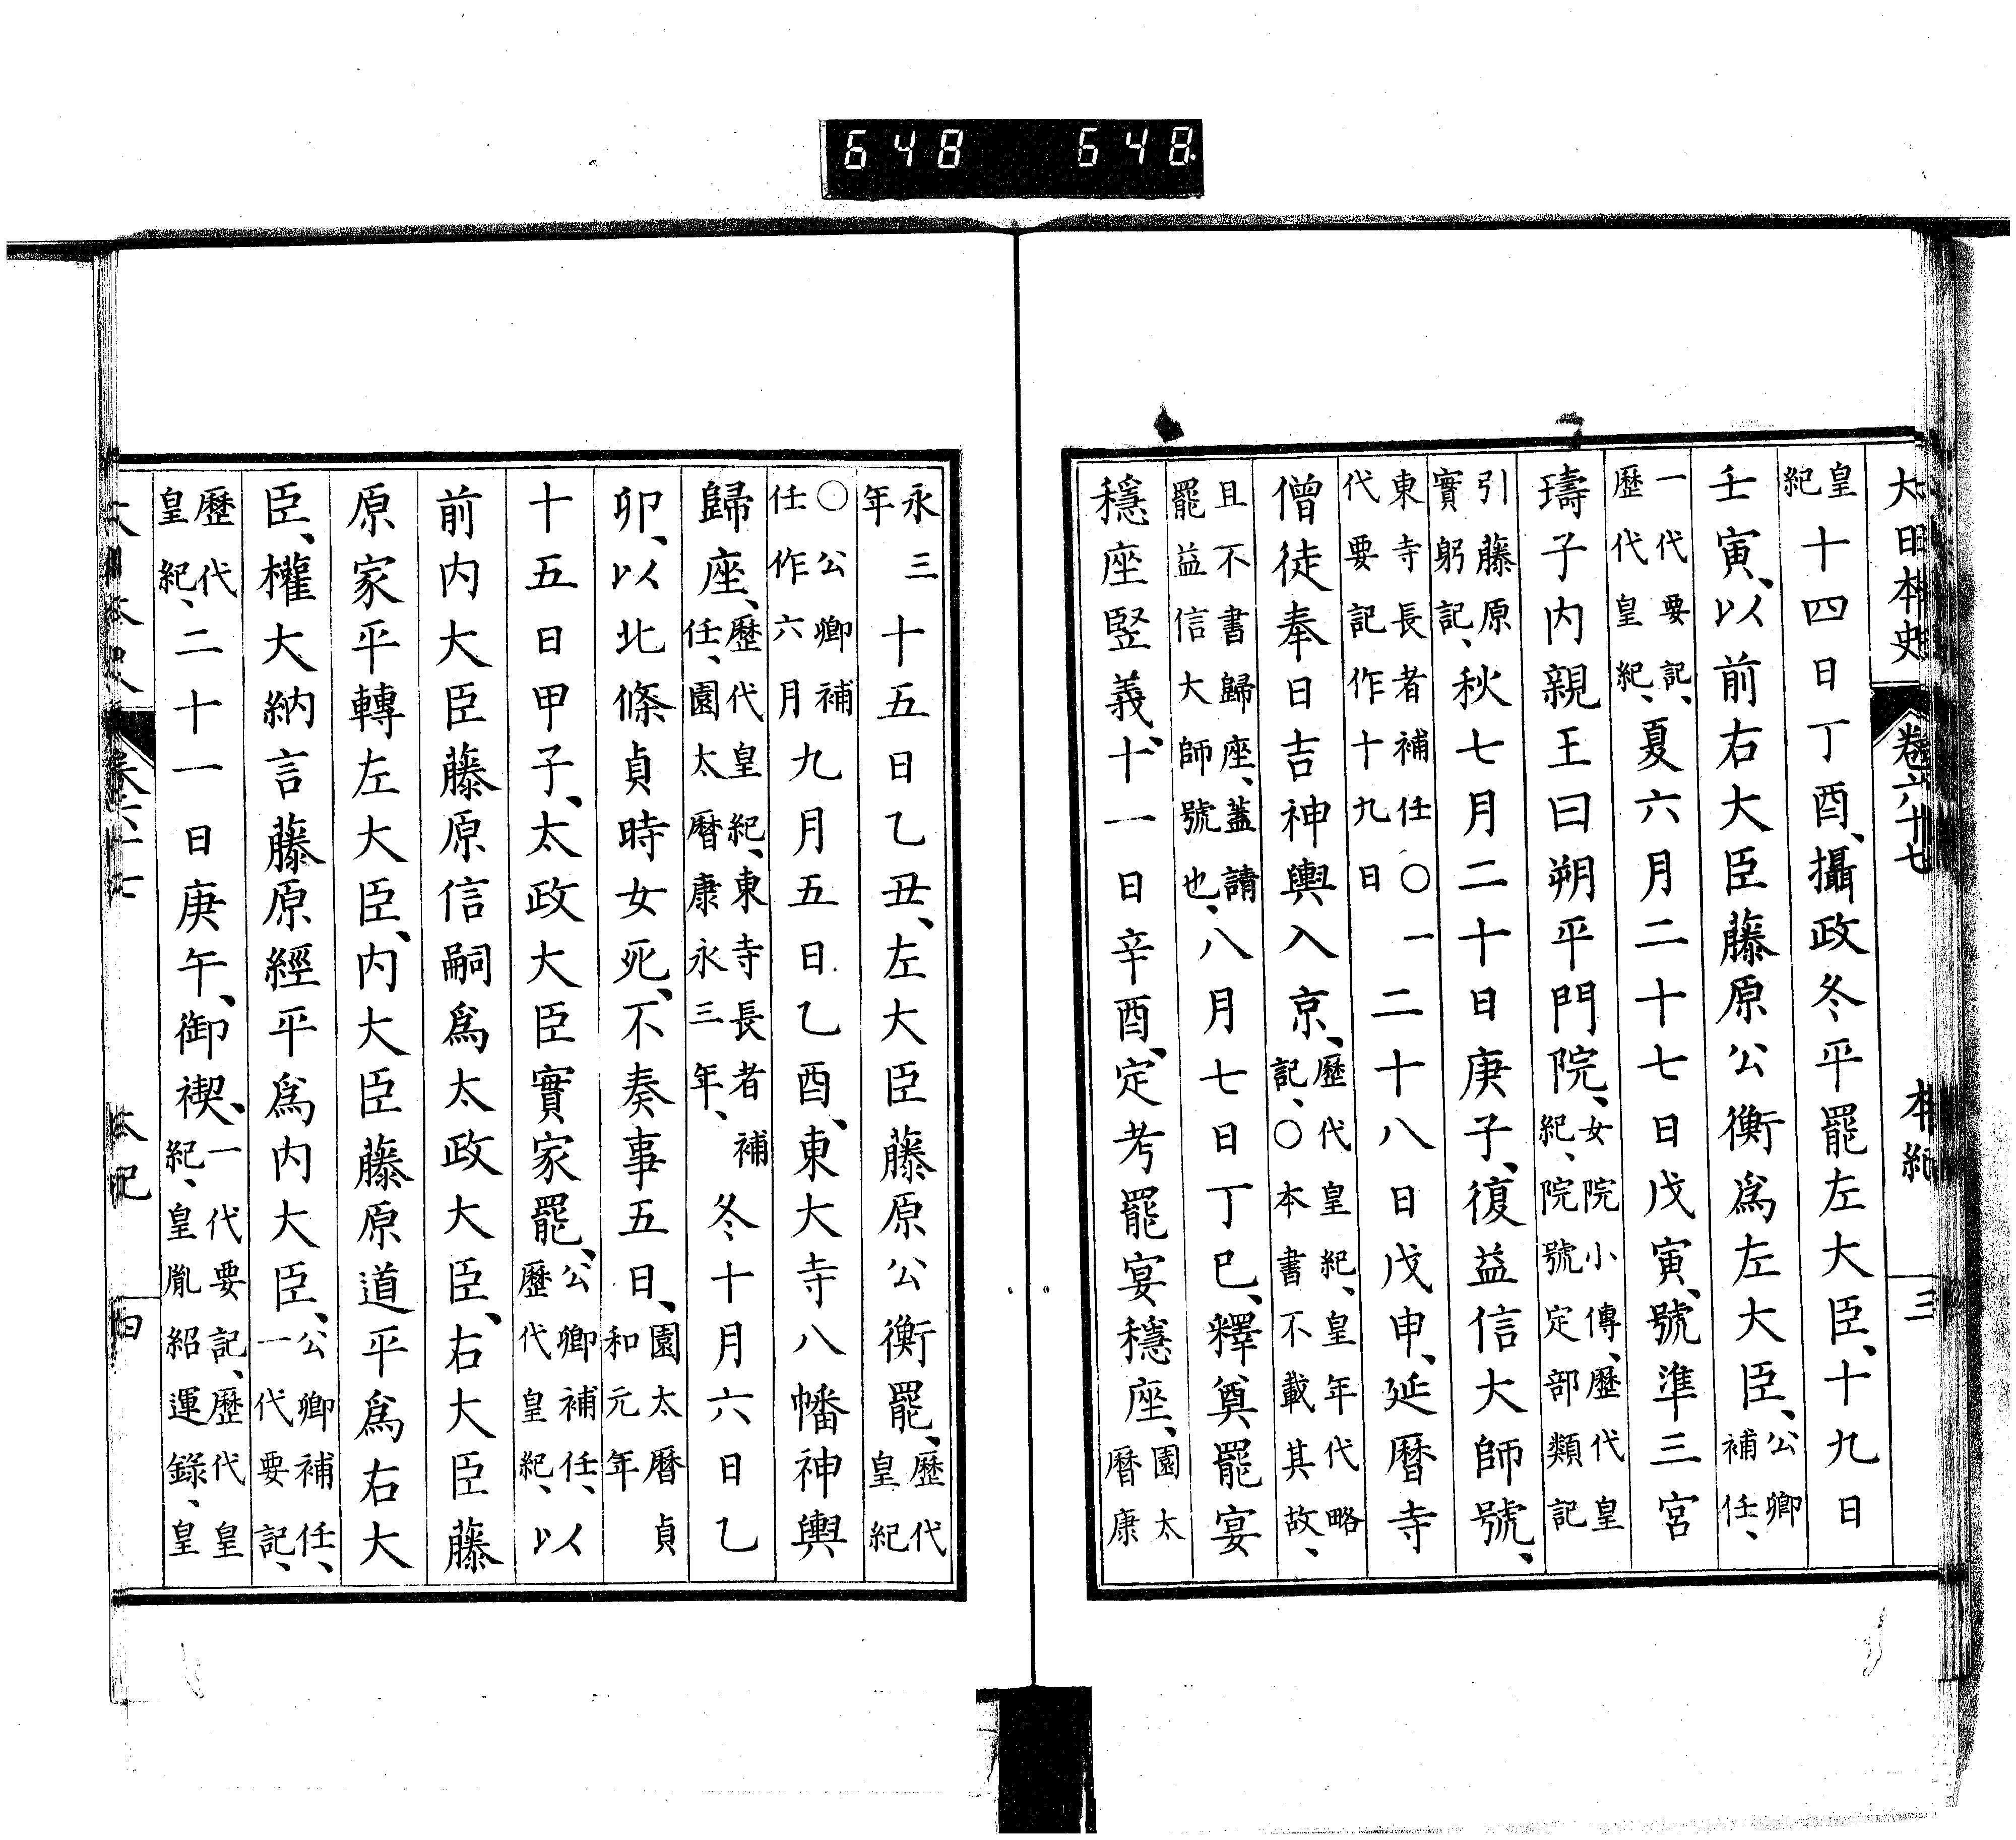 648 648
大日本史 卷六十七 本紀 三
皇紀十四日丁酉、攝政冬平罷左大臣、十九日
壬寅、以前右大臣藤原公衡爲左大臣、公卿補任、
一代要記、歷代皇紀、夏六月二十七日戊寅、號準三宮
璹子内親王曰朔平門院、女院小傳、歷代皇紀、院號定部類記
引藤原實躬記、秋七月二十日庚子、復益信大師號、
東寺長者補任〇一代要記作十九日二十八日戊申、延曆寺
僧徒奉日吉神輿入京、歷代皇紀、皇年代略記、〇本書不載其故、
且不書歸座、蓋請罷益信大師號也、八月七日丁巳、釋奠罷宴
穩座竪義、十一日辛酉、定考罷宴穩座、園太曆康
永三年十五日乙丑、左大臣藤原公衡罷、歷代皇紀
〇公卿補任作六月九月五日乙酉、東大寺八幡神輿
歸座、歷代皇紀、東寺長者補任、園太曆康永三年、冬十月六日乙
卯、以北條貞時女死、不奏事五日、園太曆貞和元年
十五日甲子、太政大臣實家罷、公卿補任、歷代皇紀、以
前内大臣藤原信嗣爲太政大臣、右大臣藤
原家平轉左大臣、内大臣藤原道平爲右大
臣、權大納言藤原經平爲内大臣、公卿補任、一代要記、
歷代皇紀、二十一日庚午、御禊、一代要記、歷代皇紀、皇胤紹運錄、皇